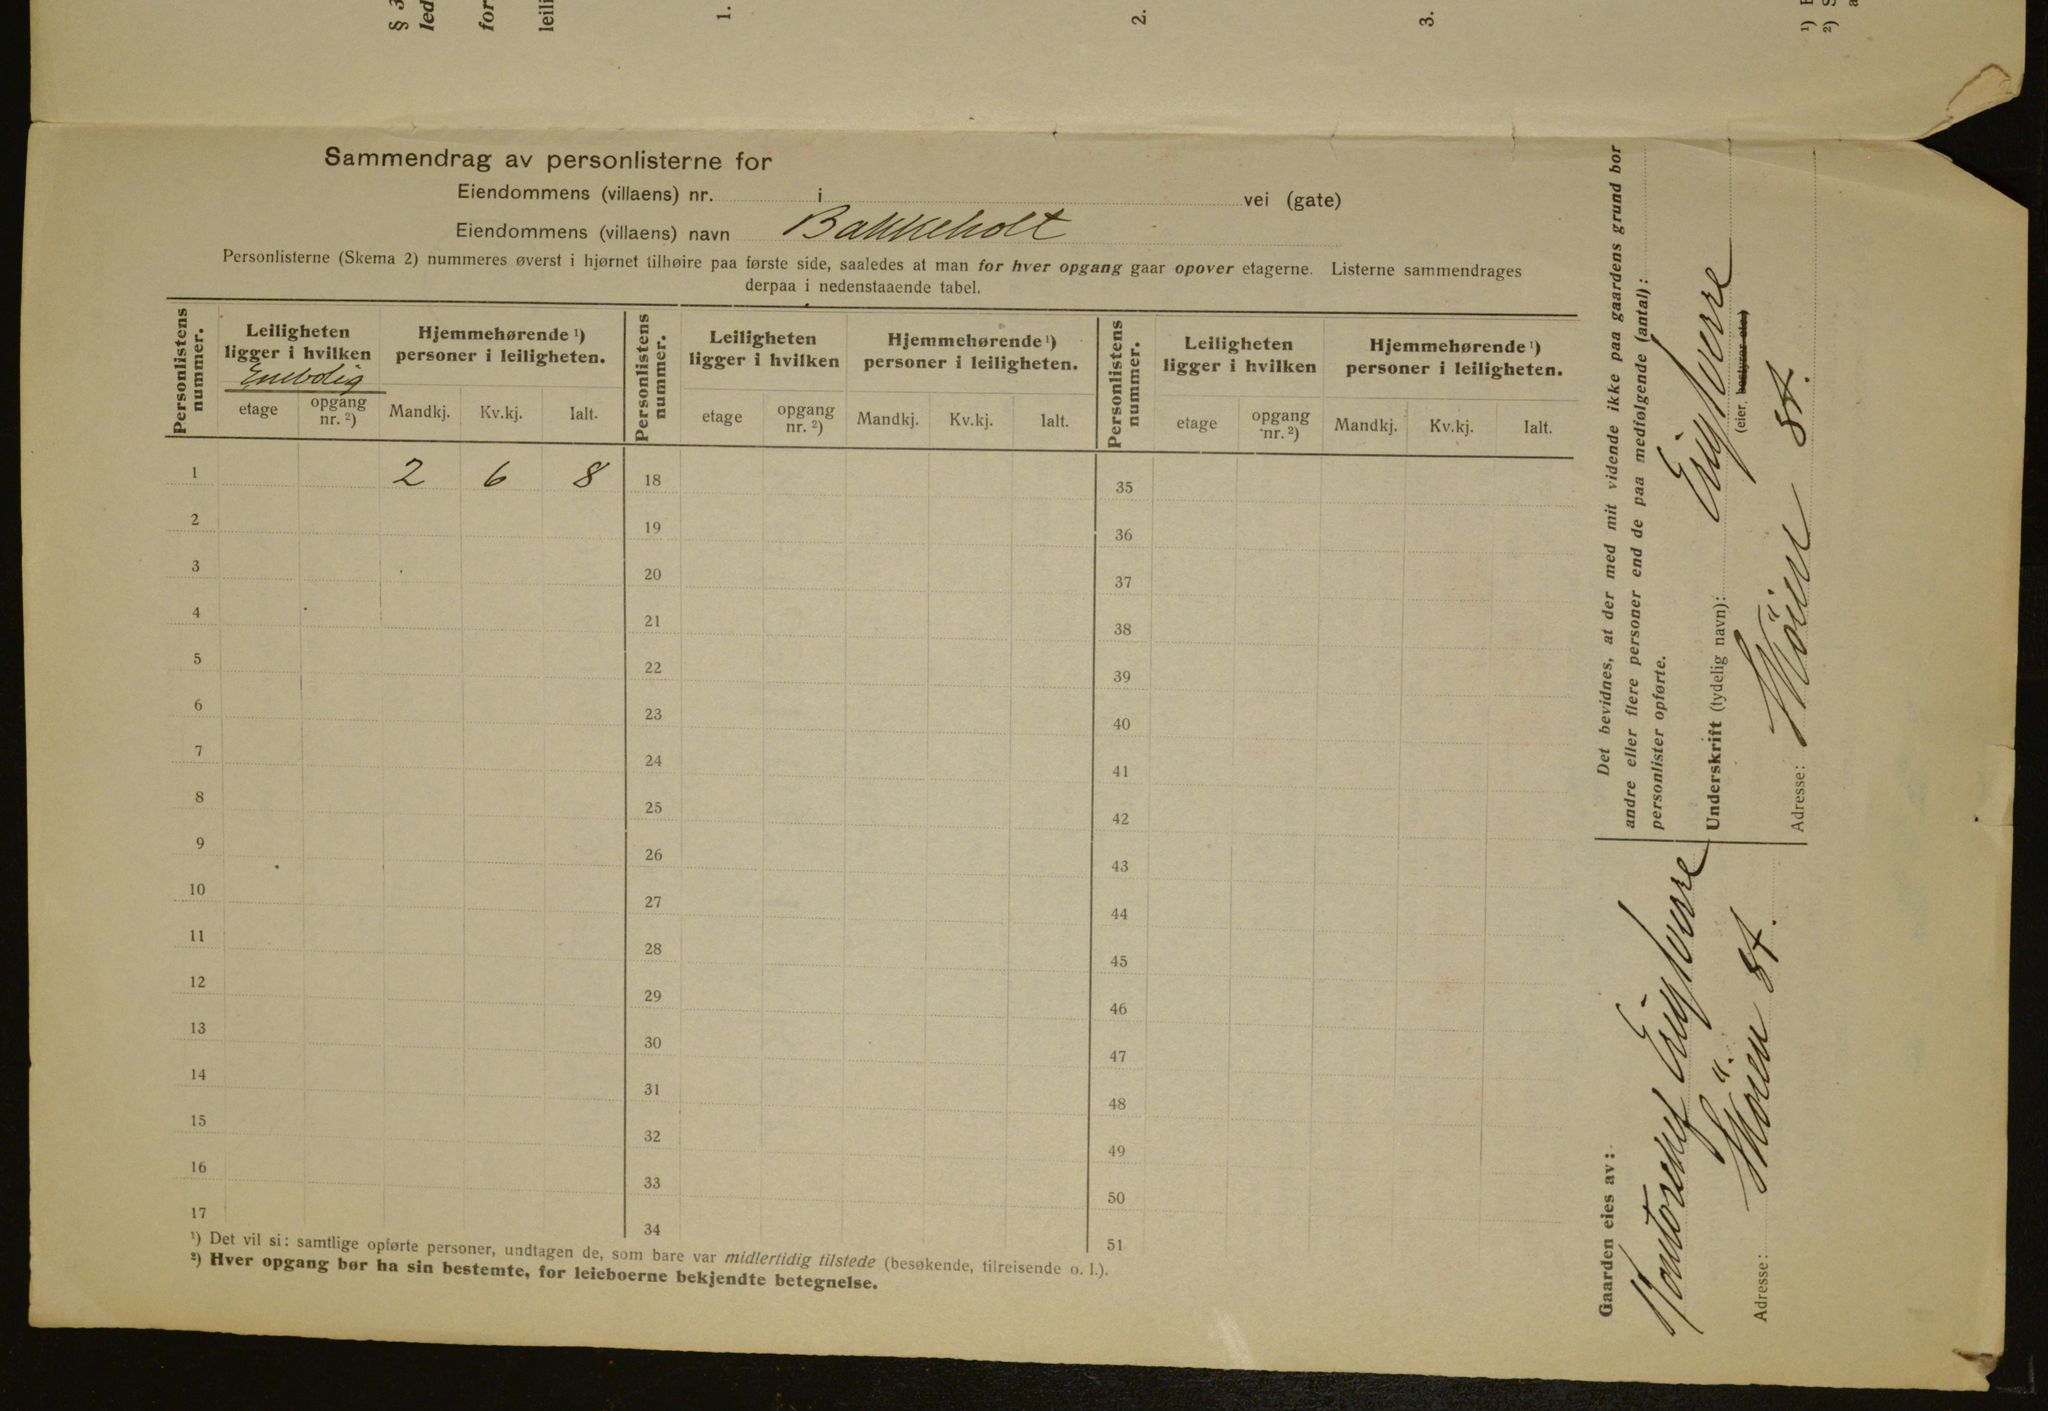 § 3
led
for
leili
1.
2.
3.
¹)
²) S
a
Sammendrag av personlisterne for
Eiendommens (villaens) nr. i vei (gate)
Eiendommens (villaens) navn Bakkeholt
Personlisterne (Skema 2) nummeres øverst i hjørnet tilhøire paa første side, saaledes at man for hver opgang gaar opover etagerne. Listerne sammendrages
derpaa i nedenstaaende tabel.
Personlistens nummer. Leiligheten ligger i hvilken Enebolig etage opgang nr. ²) Hjemmehørende ¹) personer i leiligheten. Mandkj. Kv.kj. Ialt.
Personlistens nummer. Leiligheten ligger i hvilken etage opgang nr. ²) Hjemmehørende ¹) personer i leiligheten. Mandkj. Kv.kj. Ialt.
Personlistens nummer. Leiligheten ligger i hvilken etage opgang nr. ²) Hjemmehørende ¹) personer i leiligheten. Mandkj. Kv.kj. Ialt.
1 2 6 8 18 35
2 19 36
3 20 37
4 21 38
5 22 39
6 23 40
7 24 41
8 25 42
9 26 43
10 27 44
11 28 45
12 29 46
13 30 47
14 31 48
15 32 49
16 33 50
17 34 51
¹) Det vil si: samtlige opførte personer, undtagen de, som bare var midlertidig tilstede (besøkende, tilreisende o. l.).
²) Hver opgang bør ha sin bestemte, for leieboerne bekjendte betegnelse.
Gaarden eies av:
Kontorchef
Adresse: st.
Det bevidnes, at der med mit vidende ikke paa gaardens grund bor
andre eller flere personer end de paa medfølgende (antal):
personlister opførte.
Underskrift (tydelig navn):
(eier, bestyrer etc.)
Adresse: st.